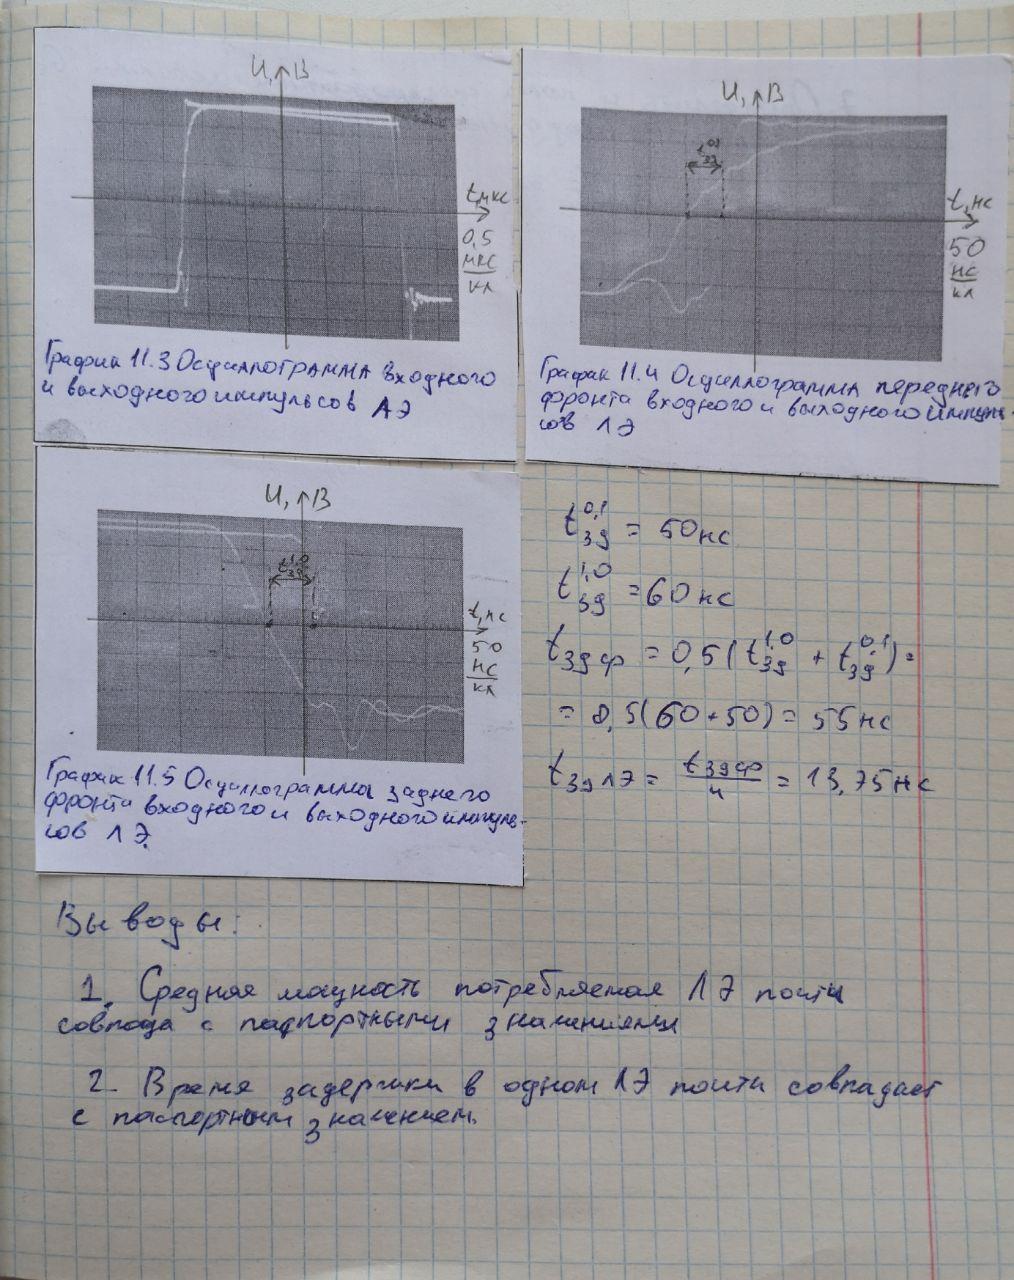 U, В
t, мкс
0,5
мкс
кл
График 11.3 Осциллограмма входного
и выходного импульсов ЛЭ
U, В
t^0,1 зд
t, нс
50
нс
кл
График 11.4 Осциллограмма переднего
фронта входного и выходного импуль-
сов ЛЭ
U, В
t^1,0 зд
t, нс
50
нс
кл
График 11.5 Осциллограмма заднего
фронта входного и выходного импуль-
сов ЛЭ.
t^0,1 зд = 50 нс
t^1,0 зд = 60 нс
t зд ср = 0,5 (t^1,0 зд + t^0,1 зд) =
= 0,5(60 + 50) = 55 нс
t зд ЛЭ = t зд ср / 4 = 13,75 нс
Выводы:
1. Средняя мощность потребляемая ЛЭ почти
совпада с паспортными значениями
2. Время задержки в одном ЛЭ почти совпадает
с паспортным значением.